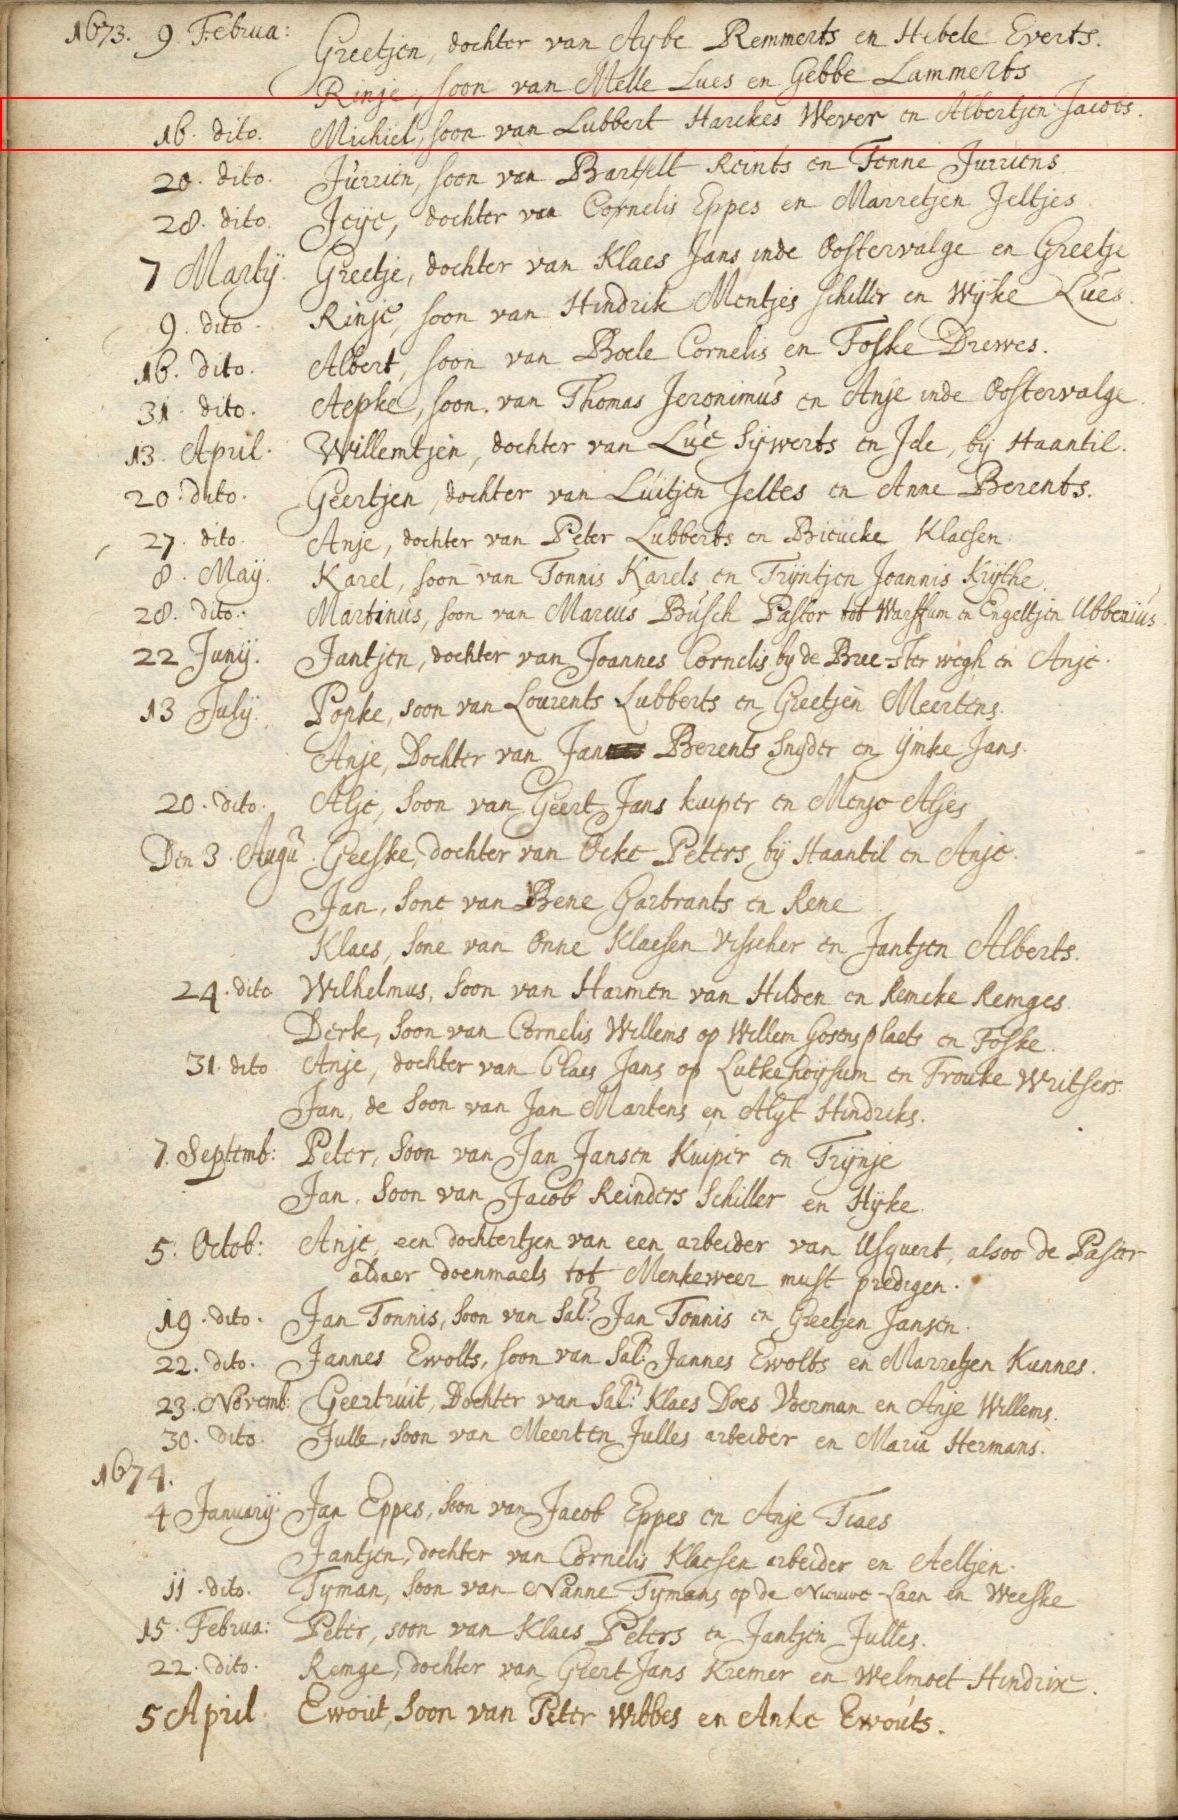 1673. 9 Februa: Greetjen, dochter van Aybe Remmerts en Hebele Everts.
Rinje, soon van Melle Lues en Gebbe Lammerts
16. dito. Michiel, soon van Lubbert Harckes Wever en Albertjen Jacobs.
20. dito. Jurrien, soon van Bartelt Reints en Tenne Jurriens
28. dito. Jeije, dochter van Cornelis Eppes en Marretjen Jeltjes
7 Martij. Greetje, dochter van Klaes Jans inde Oostervalge en Greetje
9. dito. Rinje, soon van Hindrik Mentjes schiller en Wijke Lues.
16. dito. Albert, soon van Boele Cornelis en Foske Drewes.
31. dito. Aepke, soon. van Thomas Jeronimus en Anje inde Oostervalge.
13 April. Willemtjen, dochter van Lue Sijwerts en Ide, bij Haantil.
20. dito. Geertjen, dochter van Luitjen Jeltes en Anne Berents.
27. dito. Anje, dochter van Peter Lubberts en Brieucke Klaesen.
8. Maij. Karel, soon van Tonnis Karels en Trijntjen Joannis Krijthe.
28. dito. Martinus, soon van Marcus Busch Pastor tot Warffum en Engeltjen Ubbenius.
22 Junij. Jantjen, dochter van Joannes Cornelis by de Bree-ster wegh en Anje.
13 Julij. Popke, soon van Lourents Lubberts en Greetjen Meertens.
Anje, Dochter van Jan Berents Snyder en Ymke Jans.
20. dito. Alje, soon van Geert Jans kuiper en Menje Aljes
Den 3. Augu. Geeske, dochter van Ocke Peters bij Haantil en Anje.
Jan, sone van Bene Garbrants en Rene
Klaes, sone van Onne Klaesen visscher en Jantjen Alberts.
24. dito Wilhelmus, soon van Harmen van Hilden en Remeke Remges.
Derk, soon van Cornelis Willems op Willem Gosens plaets en Foske.
31. dito Anje, dochter van Claes Jans op Lutkehoysum en Frouke Writsers.
Jan, de soon van Jan Martens en Alyt Hindriks.
7. Septemb: Peter, soon van Jan Jansen Kuiper en Trijnje
Jan, soon van Jacob Reinders Schiller en Hijke.
5. Octob: Anje, een dochtertjen van een arbeider van Usquert, alsoo de Pastor
aldaer doenmaels tot Menkeweer must predigen.
19. dito. Jan Tonnis, soon van Sal: Jan Tonnis en Greetjen Jansen.
22. dito. Jannes Ewolts, soon van Sal: Jannes Ewolts en Marretjen Kunnes.
23. Novemb: Geertruit, Dochter van Sal: Klaes Does Voerman en Anje Willems.
30. dito. Julle, soon van Meerten Julles arbeider en Maria Hermans.
1674.
4 January. Jan Eppes, soon van Jacob Eppes en Anje Tiaes
Jantjen, dochter van Cornelis Klaesen arbeider en Aeltjen.
11. dito. Tyman, soon van Nanne Tymans op de Nieuwe-Laen en Weeske
15. Februa: Peter, soon van Klaes Peters en Jantjen Julles.
22. dito. Remge, dochter van Geert Jans Kremer en Welmoet Hindrix.
5 April. Ewout, soon van Peter Wibbes en Anke Ewouts.